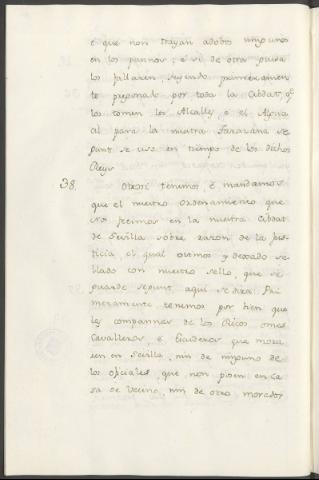 e que non trayan adobos ningunos
en los pannos; e si de otra guisa
los fallaren, seyendo primeramen
te pregonado por toda la Cibdat, q.e
los tomen los Alcalles, e el Algua
cil para la nuestra Tarazana se
gunt se usó en tiempo de los dichos
Reys
38. Otrosi tenemos, e mandamos
que el nuestro Ordenamiento que
Nos fecimos en la nuestra Cibdat
de Sevilla sobre razon de la Jus
ticia, el qual dimos y dexado se
llado con nuestro sello, que se
guarde segunt aqui se dirá. Pri
meramente tenemos por bien que
las compannas de los Ricos omes
Cavalleros, e Escuderos que mora
ren en Sevilla, nin de ninguno de
los oficiales, que non posen en ca
sa de vecino, nin de otro morador